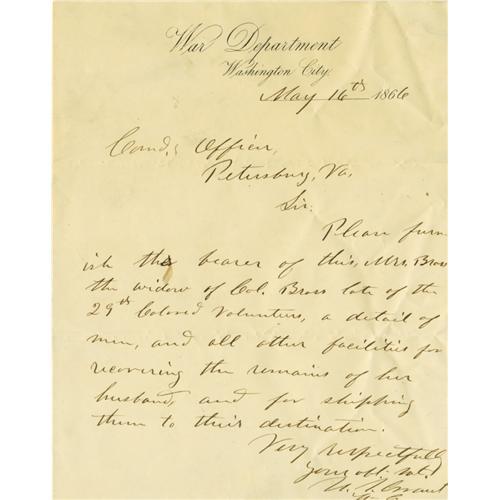 War Department
Washington City.
May 16th 1866
Comd.g Officer,
Petersburg, Va.
Sir.
Please furn
ish the bearer of this, Mrs. Bross
the widow of Col. Bross late of the
29th Colored Volunteers, a detail of
men, and all other facilities for
recovering the remains of her
husband, and for shipping
them to their destination.
Very respectfully
your obt. svt.
U. S. Grant